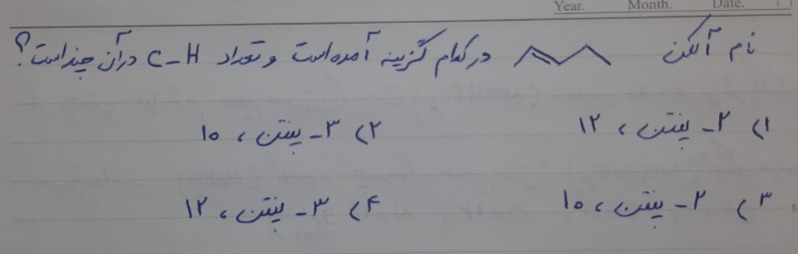 Year. Month. Date.
نام آلکن در کدام گزینه آمده است و تعداد C-H در آن چند است؟
۱) ۲- پنتن ، ۱۲ ۲) ۳- پنتن ، ۱۰
۳) ۲- پنتن ، ۱۰ ۴) ۳- پنتن ، ۱۲